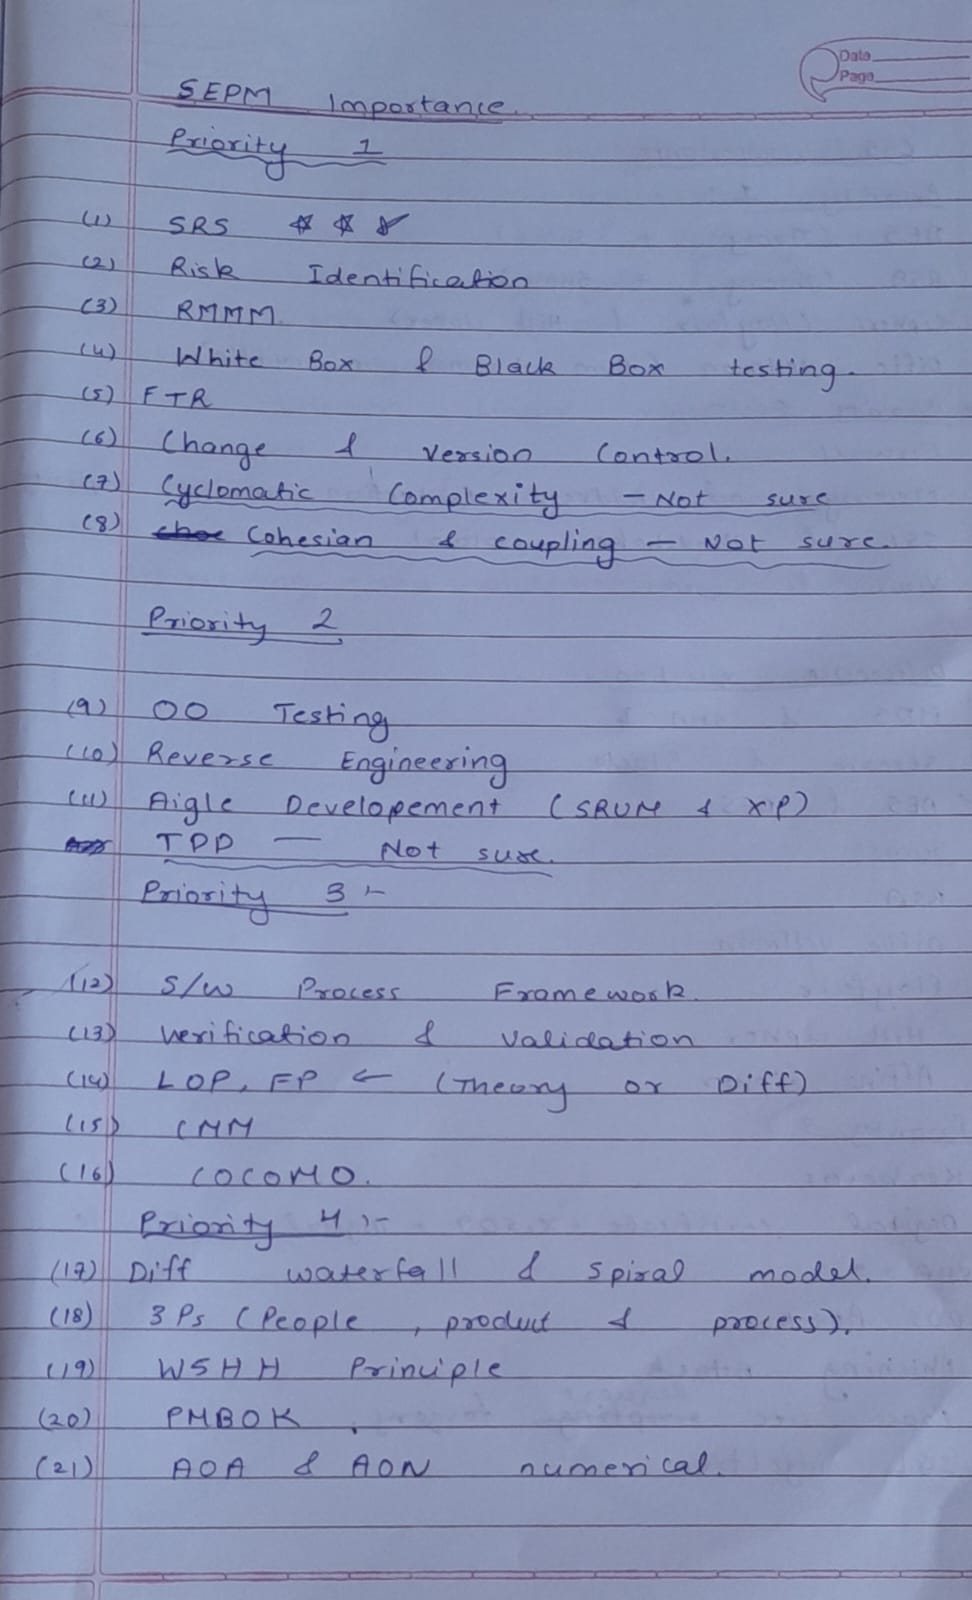 Date
Page
SEPM Importance.
Priority 1
(1) SRS
(2) Risk Identification
(3) RMMM.
(4) White Box & Black Box testing.
(5) FTR
(6) Change & version Control.
(7) Cyclomatic Complexity - Not sure
(8) Cohesian & coupling - Not sure.
Priority 2
(9) OO Testing
(10) Reverse Engineering
(11) Aigle Developement (SRUM & XP)
TDD - Not sure.
Priority 3 :-
(12) S/W Process Framework.
(13) Verification & Validation
(14) LOP, FP ← (Theory or Diff)
(15) CMM
(16) COCOMO.
Priority 4 :-
(17) Diff waterfall & spiral model.
(18) 3 Ps (People, product & process).
(19) W5HH Principle
(20) PMBOK.
(21) AOA & AON numerical.